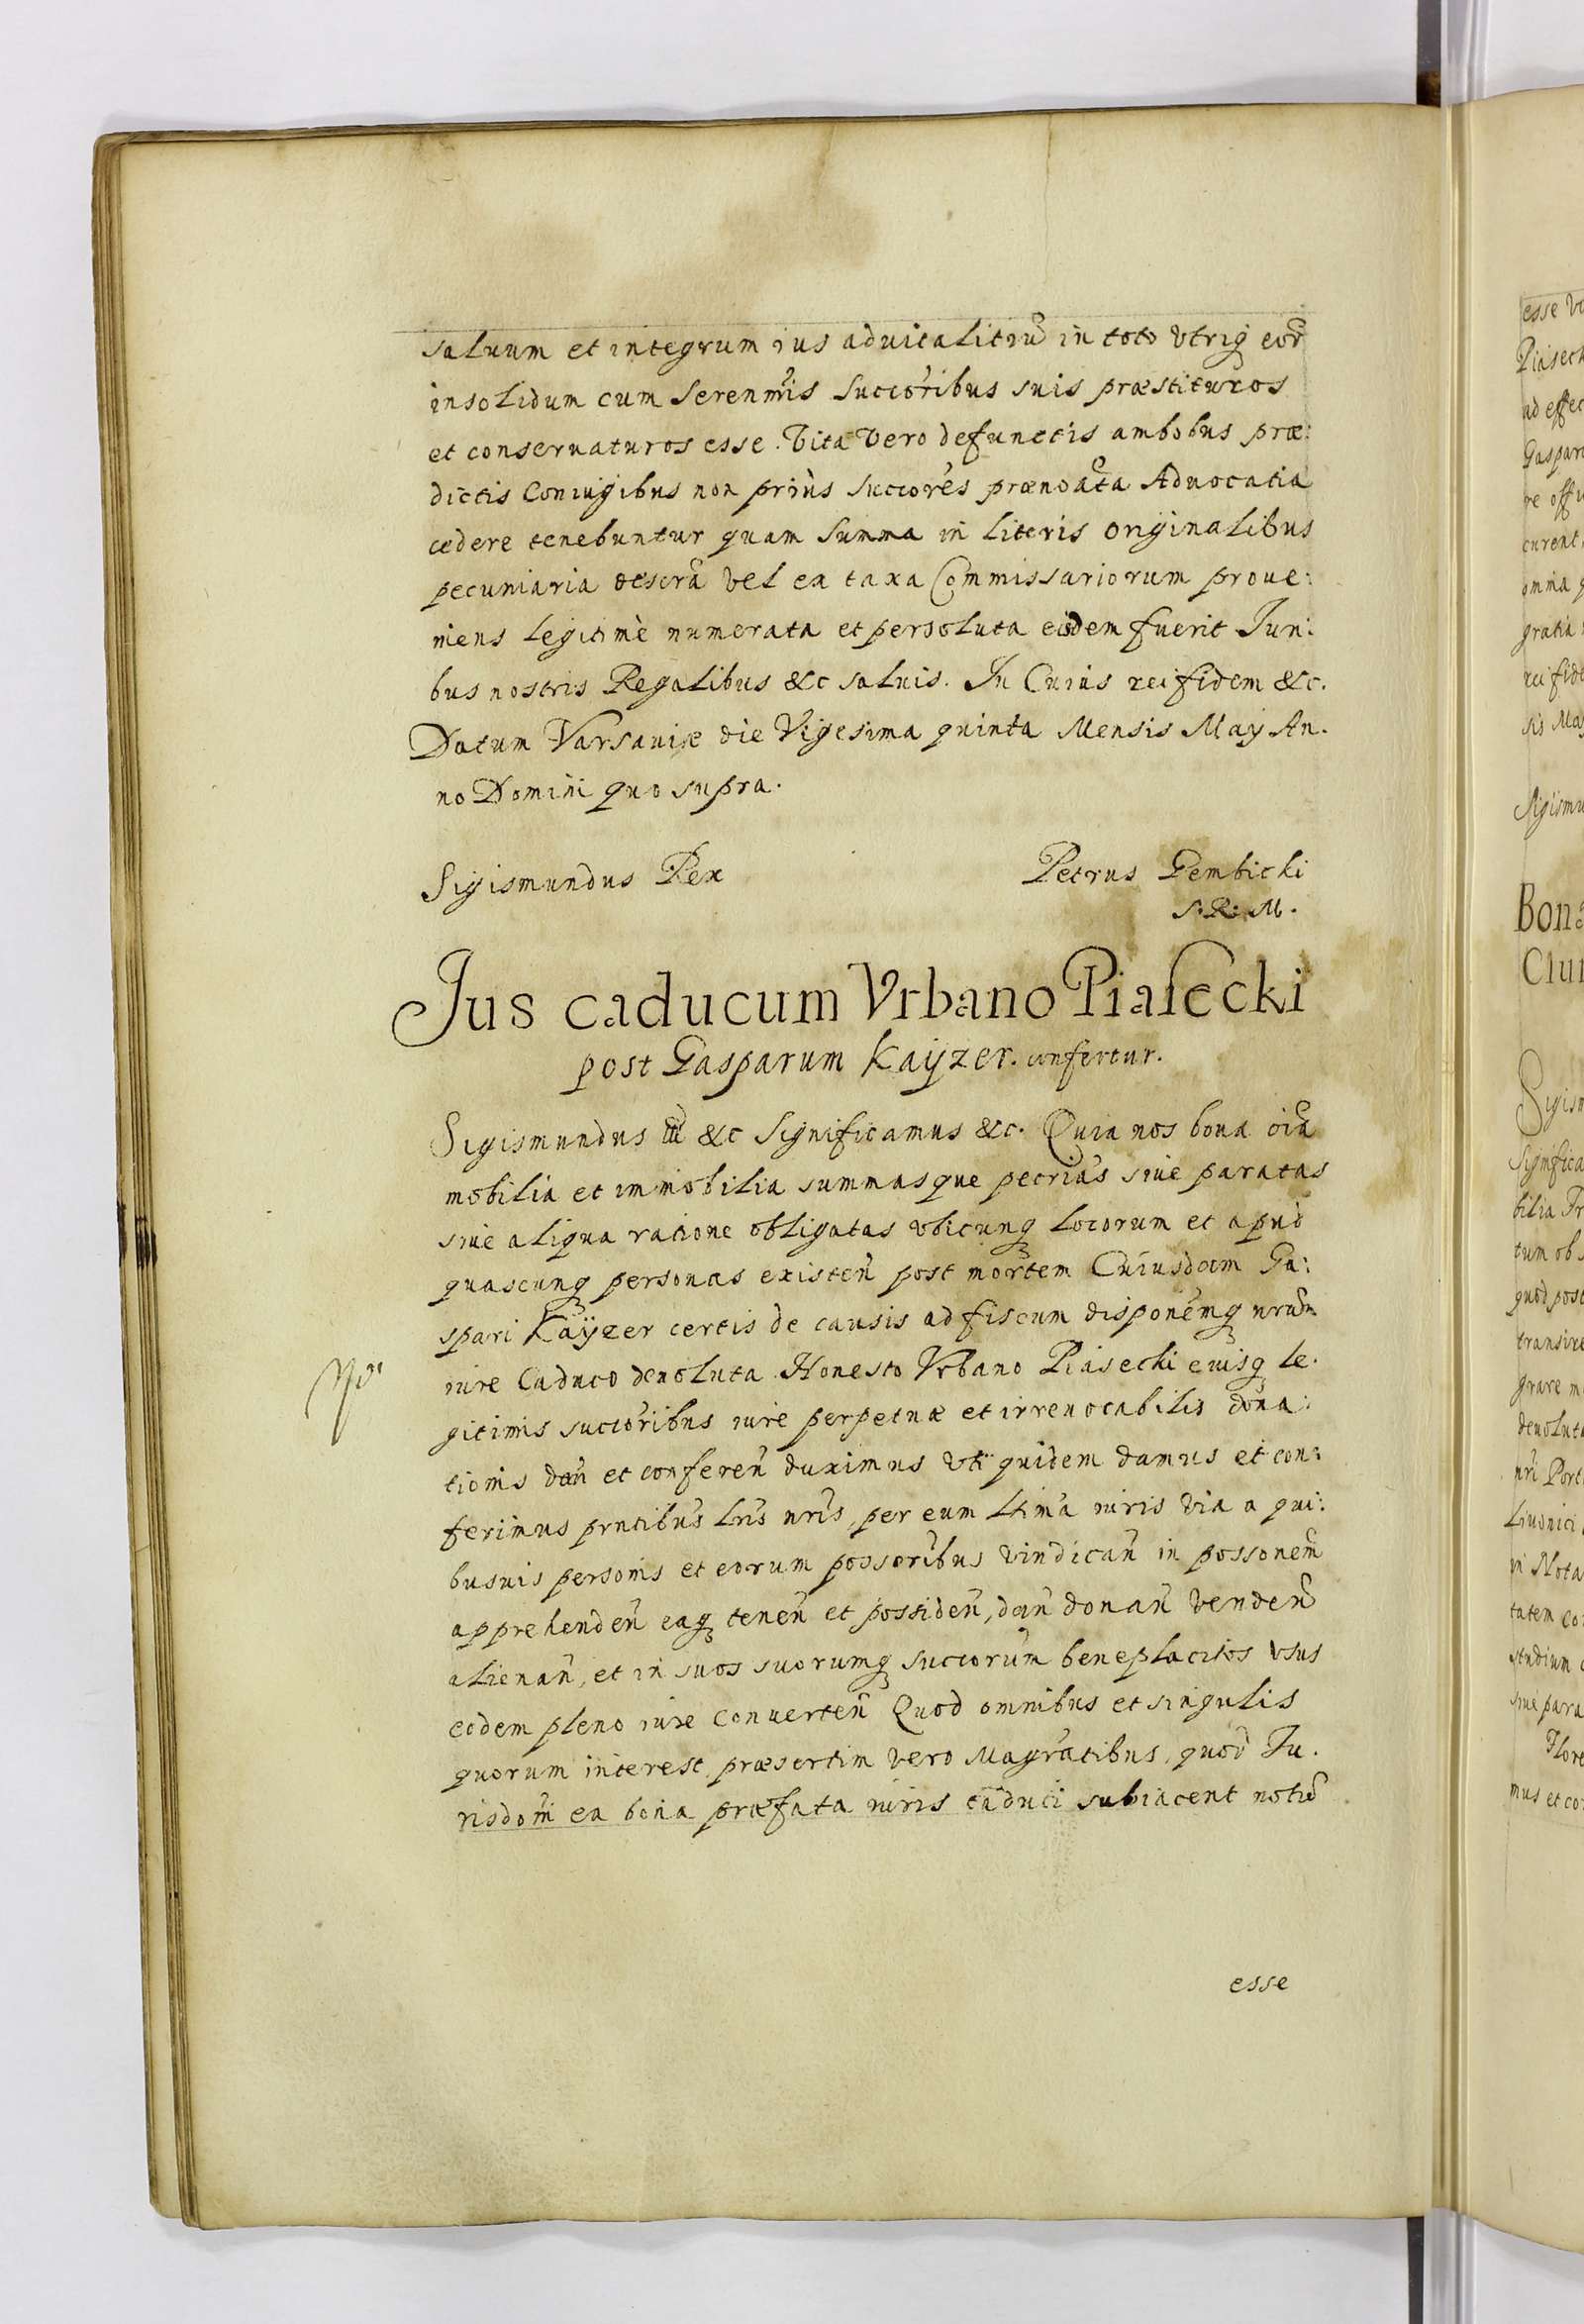 saluum et integrum ius aduitalitiũ in toto vtriq eor̃
insolidum cum Serenm̃is Succõribus suis præstituros
et conseruaturos esse. Vita vero defunctis ambobus præ:
dictis Coniugibus non priùs succorẽs prænoãta Aduocatia
cedere tenebuntur quam Summa in literis originalibus
pecuniaria descrã vel ex taxa Commissariorum proue:
niens legitimè numerata et persoluta eisdem fuerit Juri:
bus nostris Regalibus &c saluis. In Cuius rei fidem &c.
Datum Varsauiæ die Vigesima quinta Mensis May An.
no Domini quo supra.
Sigismundus Rex
Petrus Gembicki
S: R: M.
Jus caducum Vrbano Piasecki
post Gasparum Kayzer. confertur.
Sigismundus iii &c Significamus &c. Quia nos bona oĩa
mobilia et immobilia summasque pecriãs siue paratas
siue aliqua ratione obligatas vbicunq locorum et apud
quascunq personas existeñ post mortem Cuiusdam Ga:
spari Kayzer certis de causis ad fiscum disponẽmq nrãm
iure Caduco deuoluta Honesto Vrbano Piasecki euisq le.
gitimis succõribus iure perpetuæ et irreuocabilis dona:
tionis dañ et confereñ duximus vti quidem damus et con:
ferimus prntibũs lrĩs nrĩs, per eum ltimã iuris via a qui:
busuis personis et eorum possorĩbus vindicañ in possonẽm
apprehendeñ eaq teneñ et possideñ, dañ donañ vendeñ
alienañ, et in suos suorumq succorũm beneplacitos vsus
eodem pleno iure conuerteñ Quod omnibus et singulis
quorum interest, præsertim vero Magrãtibus, quod Ju.
risdom̃ ea bona præfata iuris caduci subiacent notũ
esse